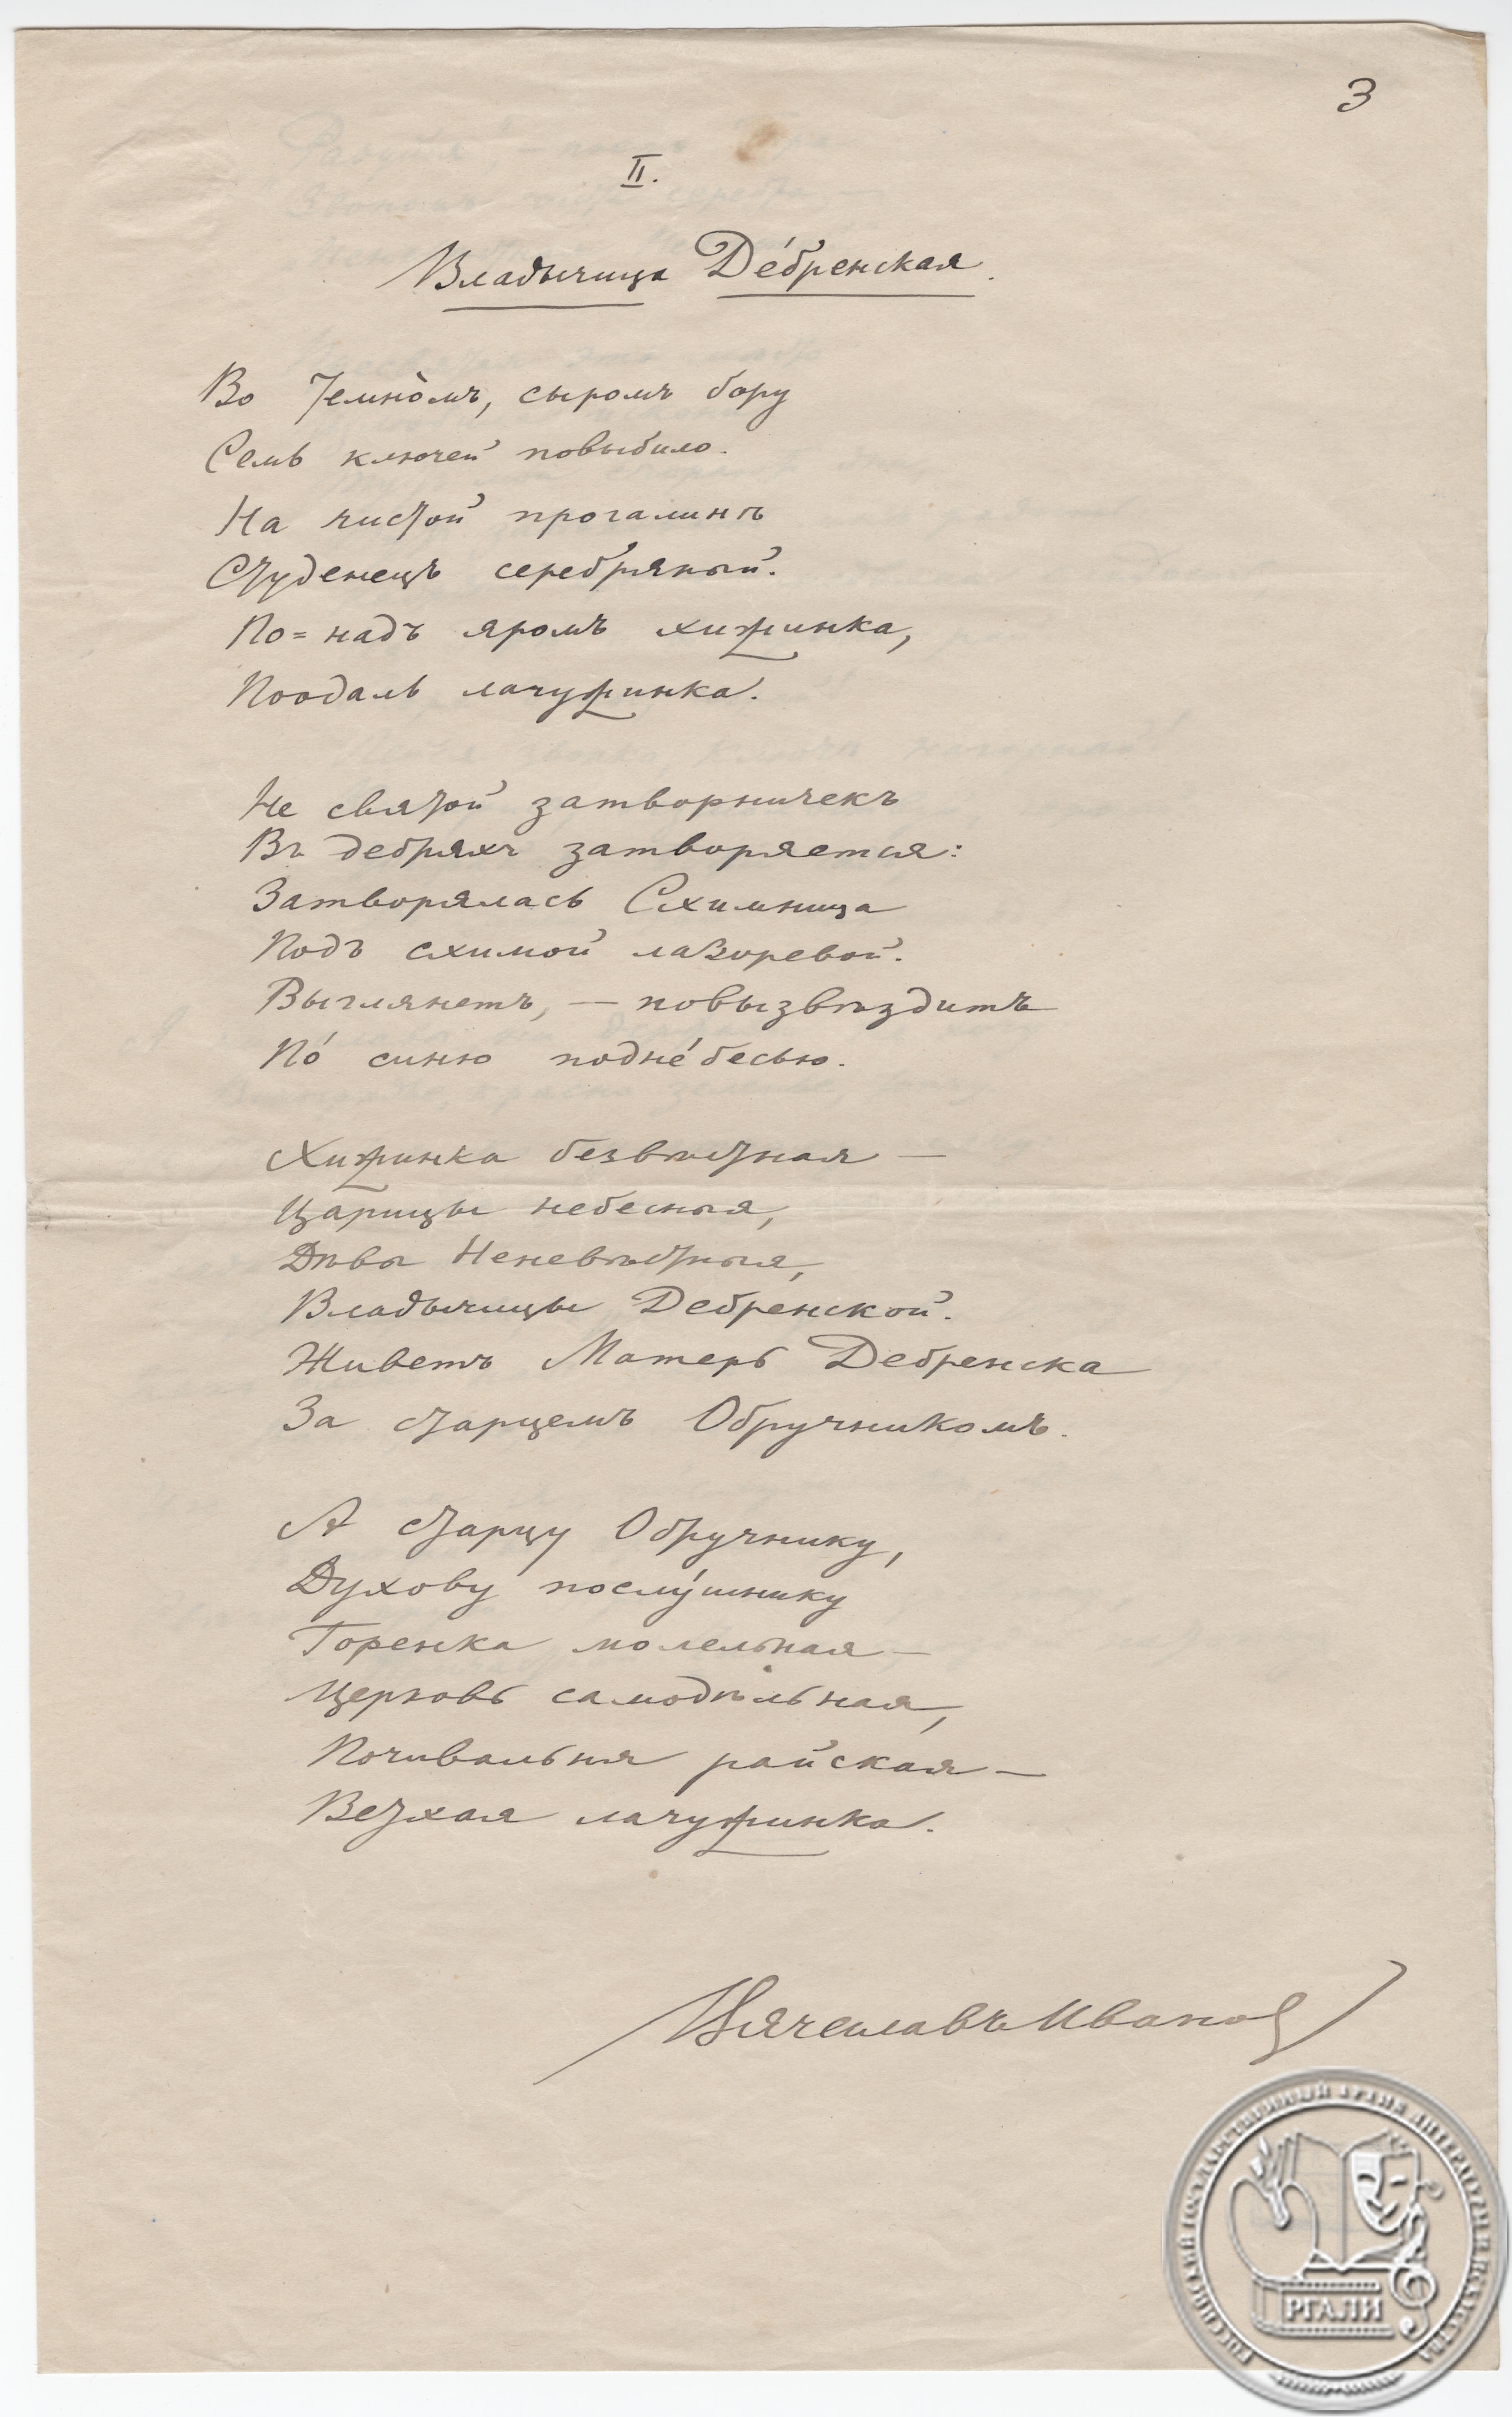 3
II.
Владычица Де́бренская.
Во темно́мъ, сыромъ бору
Семь ключей повыбило.
На чистой прогалинѣ
Студенецъ серебряный.
По=надъ яромъ хижинка,
Поодаль лачужинка.
Не святой затворничекъ
Въ дебряхъ затворяется:
Затворялась Схимница
Подъ схимой лазоревой.
Выглянетъ, — повызвѣздитъ
По́ синю подне́бесью.
Хижинка безвѣстная —
Царицы небесныя,
Дѣвы Неневѣстныя,
Владычицы Дебренской.
Живетъ Матерь Дебренска
За старцемъ Обручникомъ.
А старцу Обручнику,
Духову послу́шнику
Горенка молельная —
Церковь самодѣльная,
Почивальня райская —
Ветхая лачужинка.
Вячеславъ Иванов
РОССИЙСКИЙ ГОСУДАРСТВЕННЫЙ АРХИВ ЛИТЕРАТУРЫ И ИСКУССТВА
РГАЛИ